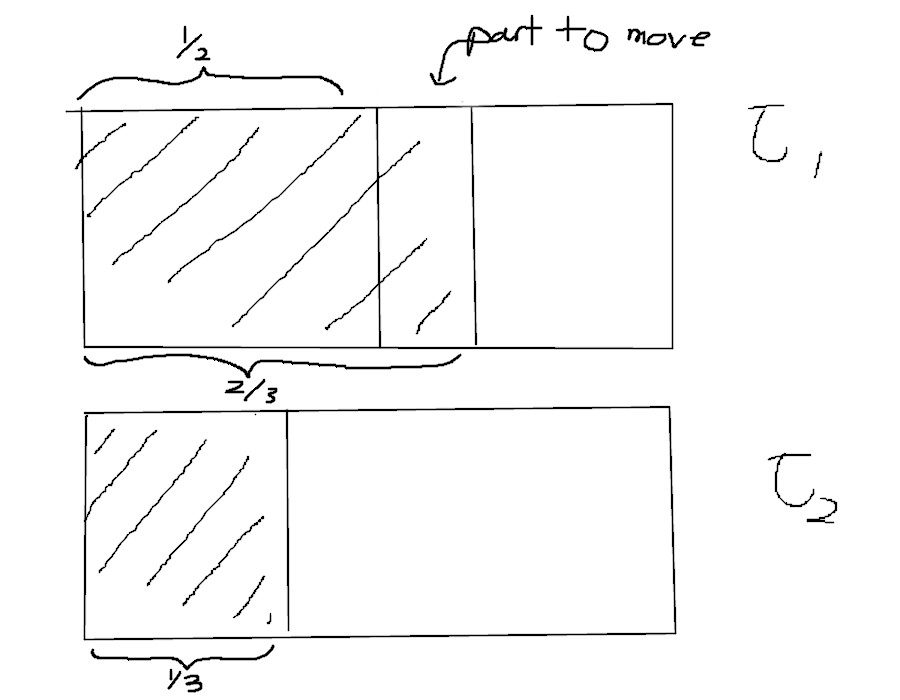 part to move
1/2
τ1
2/3
τ2
1/3